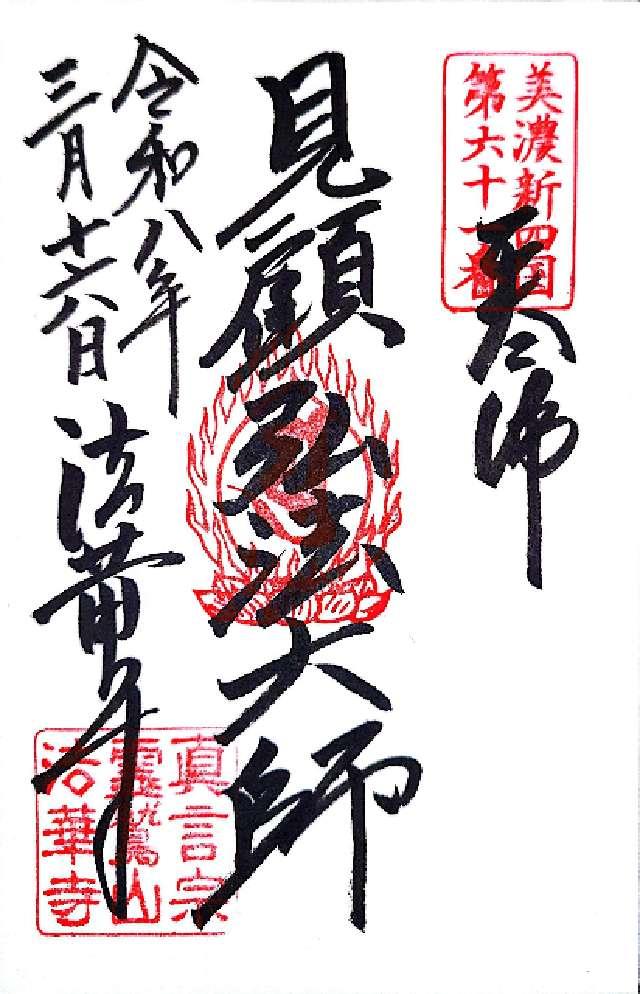 美濃新四国
第六十一番
奉拝
見顧弘法大師
令和八年
三月十六日
法華寺
真言宗
霊鷲山
法華寺